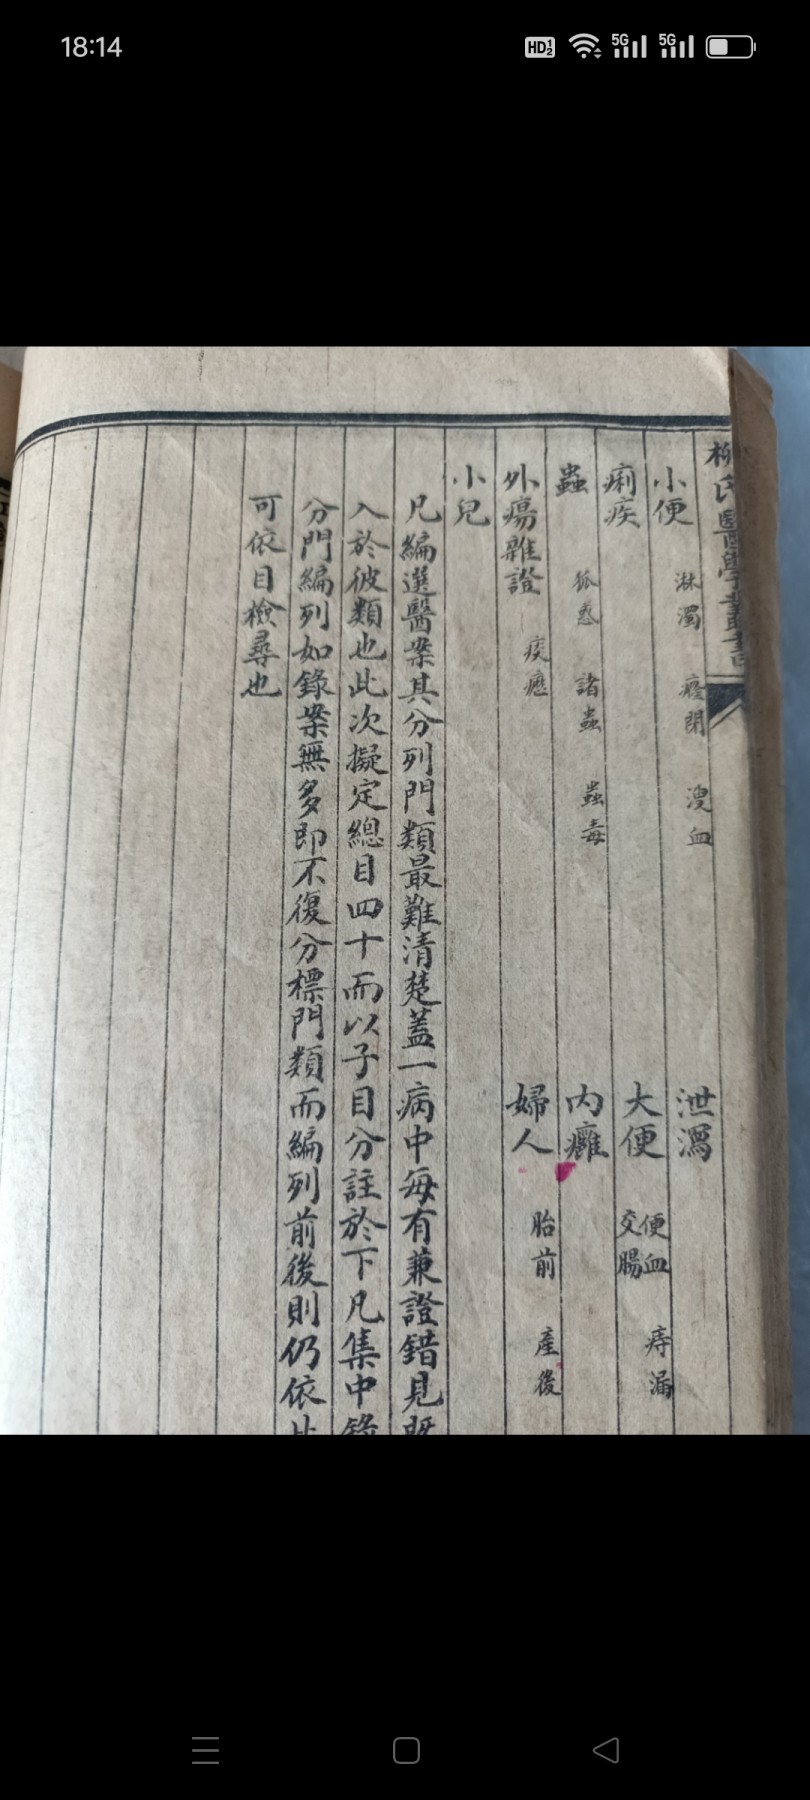 18:14
HD 1 2 5G 5G
柳氏醫學叢書
小便 淋濁 癃閉 溲血 泄瀉
痢疾 大便 便血 交腸 痔漏
蟲 狐惑 諸蟲 蟲毒 內癰
外瘍雜證 瘰癧 婦人 胎前 產後
小兒
凡編選醫案其分列門類最難清楚蓋一病中每有兼證錯見既
入於彼類也此次擬定總目四十而以子目分註於下凡集中錄
分門編列如錄案無多即不復分標門類而編列前後則仍依此
可依目檢尋也